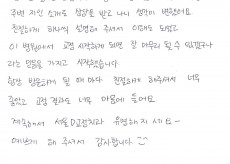 주변 지인 소개로 상담을 받고 나니 생각이 변했어요.
친절하게 하나씩 설명해 주셔서 이해도 되었고
이 병원에서 교정 시작하게 되면 잘 마무리 될 수 있겠구나
라는 믿음을 가지고 시작했습니다.
항상 방문하게 될 때 마다 친절하게 해주셔서 너무
좋았고 교정 결과도 너무 마음에 들어요
계속해서 서울 교정치과 유명해지세요~
예쁘게 해 주셔서 감사합니다